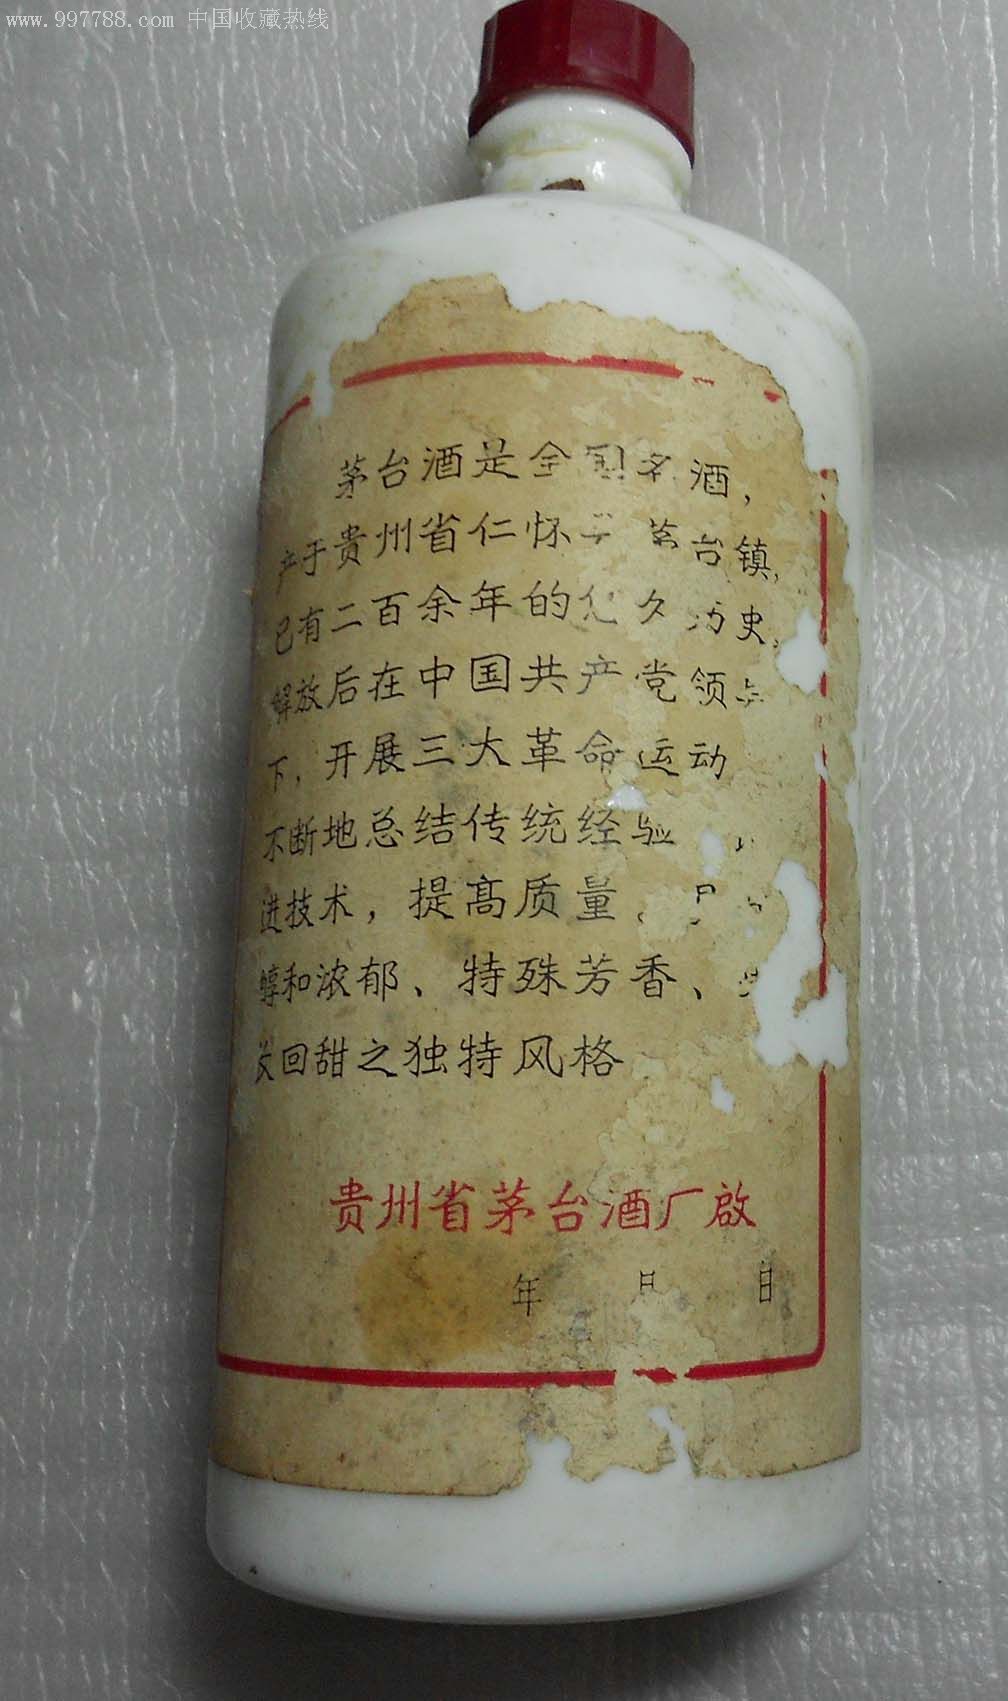 www.997788.com 中国收藏热线
茅台酒是全国名酒，
产于贵州省仁怀 茅台镇，
已有二百余年的悠久历史，
解放后在中国共产党领导
下，开展三大革命运动
不断地总结传统经验
进技术，提高质量、
醇和浓郁、特殊芳香、
长回甜之独特风格
贵州省茅台酒厂啟
年 月 日